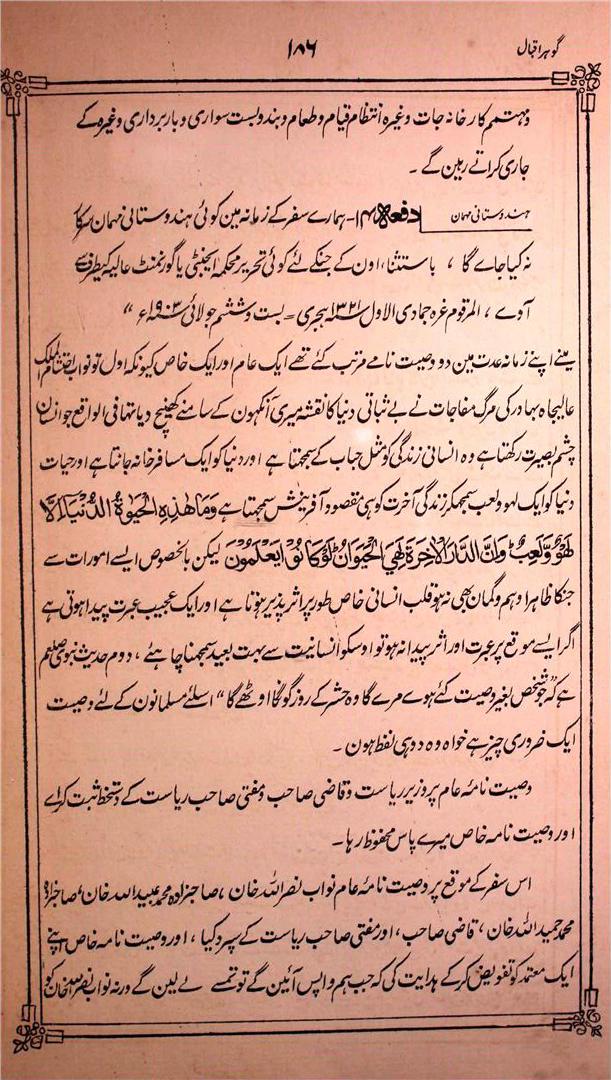 گوہر اقبال
۱۸۶
و مہتمم کارخانہ جات وغیرہ انتظام قیام و طعام و بندوبست سواری و باربرداری وغیرہ کے
جاری کراتے رہین گے ۔
ہندوستانی مہمان
دفعہ ۱۴۱- ہمارے سفر کے زمانہ مین کوئی ہندوستانی مہمان سرکار
نہ کیا جاے گا ، باستثناء اون کے جنکے لئے کوئی تحریر محکمہ ایجنٹی یا گورنمنٹ عالیہ کیطرف سے
آوے ، المرقوم غرہ جمادی الاول ۱۳۲۱ سنہ ہجری = بست و ششم جولائی ۱۹۰۳ سنہ ء “
مینے اپنے زمانہ عدت مین دو وصیت نامے مرتب کئے تھے ایک عام اور ایک خاص کیونکہ اول تو نواب احتشام الملک
عالیجاہ بہادر کی مرگ مفاجات نے بے ثباتی دنیا کا نقشہ میری آنکھون کے سامنے کھینچ دیا تھا فی الواقع جو انسان
چشم بصیرت رکھتا ہے وہ انسانی زندگی کو مثل حباب کے سمجھتا ہے اور دنیا کو ایک مسافر خانہ جانتا ہے اور حیات
دنیا کو ایک لہو و لعب سمجھکر زندگی آخرت کو ہی مقصود آفرینش سمجھتا ہے وَمَا هٰذِهِ الْحَيٰوةُ الدُّنْيَا اِلَّا
لَهْوٌ وَّلَعِبٌ وَاِنَّ الدَّارَ الْاٰخِرَةَ لَهِيَ الْحَيَوَانُ لَوْ كَانُوْا يَعْلَمُوْنَ لیکن بالخصوص ایسے امورات سے
جنکا ظاہرا وہم و گمان بھی نہ ہو قلب انسانی خاص طور پر اثر پذیر ہوتا ہے اور ایک عجیب عبرت پیدا ہوتی ہے
اگر ایسے موقع پر عبرت اور اثر پیدا نہ ہو تو اوسکو انسانیت سے بہت بعید سمجھنا چاہئے ، دوم حدیث نبوی صلعم
ہے کہ ”جو شخص بغیر وصیت کئے ہوے مرے گا وہ حشر کے روز گونگا اوٹھے گا“ اسلئے مسلمانون کے لئے وصیت
ایک ضروری چیز ہے خواہ وہ دو ہی لفظ ہون ۔
وصیت نامۂ عام پر وزیر ریاست و قاضی صاحب و مفتی صاحب ریاست کے دستخط ثبت کراے
اور وصیت نامہ خاص میرے پاس محفوظ رہا ۔
اس سفر کے موقع پر وصیت نامۂ عام نواب نصر اللہ خان ، صاحبزادہ محمد عبید اللہ خان ، صاحبزادہ
محمد حمید اللہ خان ، قاضی صاحب ، اور مفتی صاحب ریاست کے سپرد کیا ، اور وصیت نامہ خاص اپنے
ایک معتمد کو تفویض کرکے ہدایت کی کہ جب ہم واپس آئین گے تو تمسے لے لین گے ورنہ نواب نصر اللہ خان کو